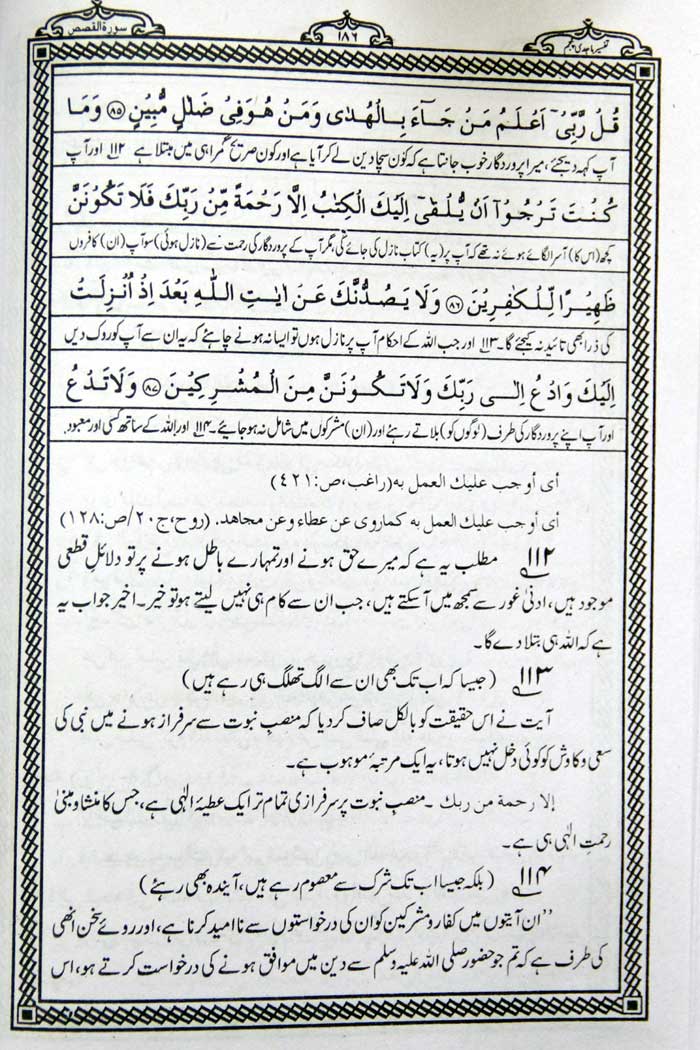 سورة القصص
۱۸۶
تفسیر ماجدی پنجم
قُلْ رَّبِّيْٓ اَعْلَمُ مَنْ جَآءَ بِالْهُدٰى وَمَنْ هُوَ فِيْ ضَلٰلٍ مُّبِيْنٍ ۝۸۵ وَمَا
آپ کہہ دیجئے، میرا پروردگار خوب جانتا ہے کہ کون سچا دین لے کر آیا ہے اور کون صریح گمراہی میں مبتلا ہے ۱۱۲ اور آپ
كُنْتَ تَرْجُوْٓا اَنْ يُّلْقٰٓى اِلَيْكَ الْكِتٰبُ اِلَّا رَحْمَةً مِّنْ رَّبِّكَ فَلَا تَكُوْنَنَّ
کچھ (اس کا) آسرا لگائے ہوئے نہ تھے کہ آپ پر (یہ) کتاب نازل کی جائے گی، مگر آپ کے پروردگار کی رحمت سے (نازل ہوئی) سو آپ (ان) کافروں
ظَهِيْرًا لِّلْكٰفِرِيْنَ ۝۸۶ وَلَا يَصُدُّنَّكَ عَنْ اٰيٰتِ اللّٰهِ بَعْدَ اِذْ اُنْزِلَتْ
کی ذرا بھی تائید نہ کیجئے گا۔ ۱۱۳ اور جب اللہ کے احکام آپ پر نازل ہوں تو ایسا نہ ہونے چاہئے کہ یہ ان سے آپ کو روک دیں
اِلَيْكَ وَادْعُ اِلٰى رَبِّكَ وَلَا تَكُوْنَنَّ مِنَ الْمُشْرِكِيْنَ ۝۸۷ وَلَا تَدْعُ
اور آپ اپنے پروردگار کی طرف (لوگوں کو) بلاتے رہئے اور (ان) مشرکوں میں شامل نہ ہو جائیے۔ ۱۱۴ اور اللہ کے ساتھ کسی اور معبود
أی أوجب عليك العمل به (راغب، ص: ۴۲۱)
أی أوجب عليك العمل به كماروی عن عطاء وعن مجاهد. (روح، ج ۲۰/ ص: ۱۲۸)
۱۱۲ مطلب یہ ہے کہ میرے حق ہونے اور تمہارے باطل ہونے پر تو دلائلِ قطعی
موجود ہیں، ادنیٰ غور سے سمجھ میں آسکتے ہیں، جب ان سے کام ہی نہیں لیتے ہو تو خیر۔ اخیر جواب یہ
ہے کہ اللہ ہی بتلا دے گا۔
۱۱۳ (جیسا کہ اب تک بھی ان سے الگ تھلگ ہی رہے ہیں)
آیت نے اس حقیقت کو بالکل صاف کر دیا کہ منصبِ نبوت سے سرفراز ہونے میں نبی کی
سعی و کاوش کو کوئی دخل نہیں ہوتا، یہ ایک مرتبۂ موہوب ہے۔
إلا رحمة من ربك ۔ منصبِ نبوت پر سرفرازی تمام تر ایک عطیۂ الٰہی ہے، جس کا منشا و مبنیٰ
رحمتِ الٰہی ہی ہے۔
۱۱۴ (بلکہ جیسا اب تک شرک سے معصوم رہے ہیں، آیندہ بھی رہئے)
”ان آیتوں میں کفار و مشرکین کو ان کی درخواستوں سے ناامید کرنا ہے، اور روئے سخن انھی
کی طرف ہے کہ تم جو حضور صلی اللہ علیہ وسلم سے دین میں موافق ہونے کی درخواست کرتے ہو، اس